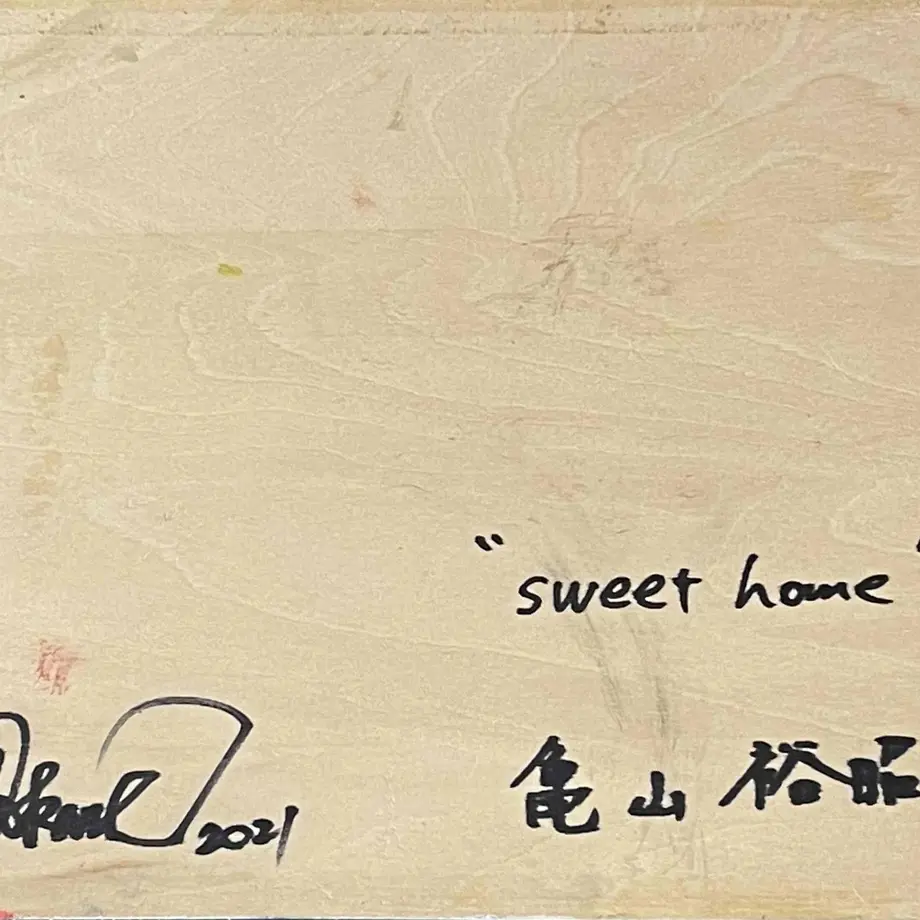 "sweet home"
2021
亀山裕昭